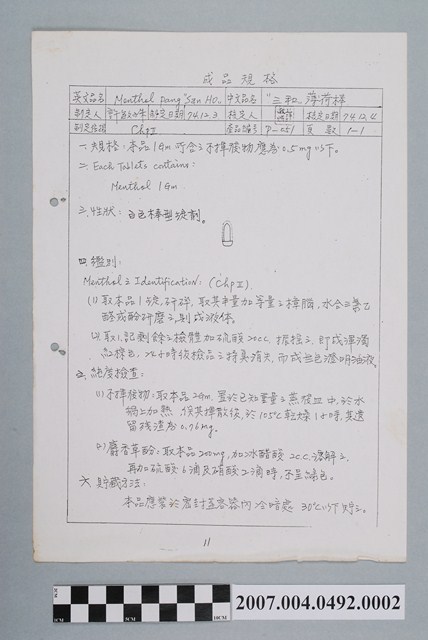 成品規格
英文品名 Menthol Pang "San Ho" 中文品名 "三和" 薄荷棒
制定人 制定日期 74.12.3 核定人 核定日期 74.12.4
制定依據 ChpII 產品編號 P-051 頁數 1-1
一.規格:本品1Gm所含之不揮發物應為0.5mg以下。
二.Each Tablets contains:
Menthol 1Gm
三.性狀:白色棒型錠劑。
四.鑑別:
Menthol之Identification:(Chp II)
(1)取本品1錠,研碎,取其半量加等量之樟腦,水合三氯乙
醛或酚研磨之,則成液体。
(2)取(1)記剩餘之檢體加硫酸20c.c.振搖之,即成渾濁
紅棕色,
五.純度檢查:
(1)不揮發物:取本品2Gm,置於已知重量之蒸發皿中,於水
鍋上加熱,俟其揮散後,於105℃乾燥1小時,其遺
留殘渣為0.76mg.
(2)麝香草酚:取本品200mg,加冰醋酸2c.c.溶解之,
再加硫酸6滴及硝酸2滴時,不呈綠色。
六.貯藏方法:
本品應裝於密封蓋容器內冷暗處30℃以下貯之。
11
5CM
10CM
2007.004.0492.0002